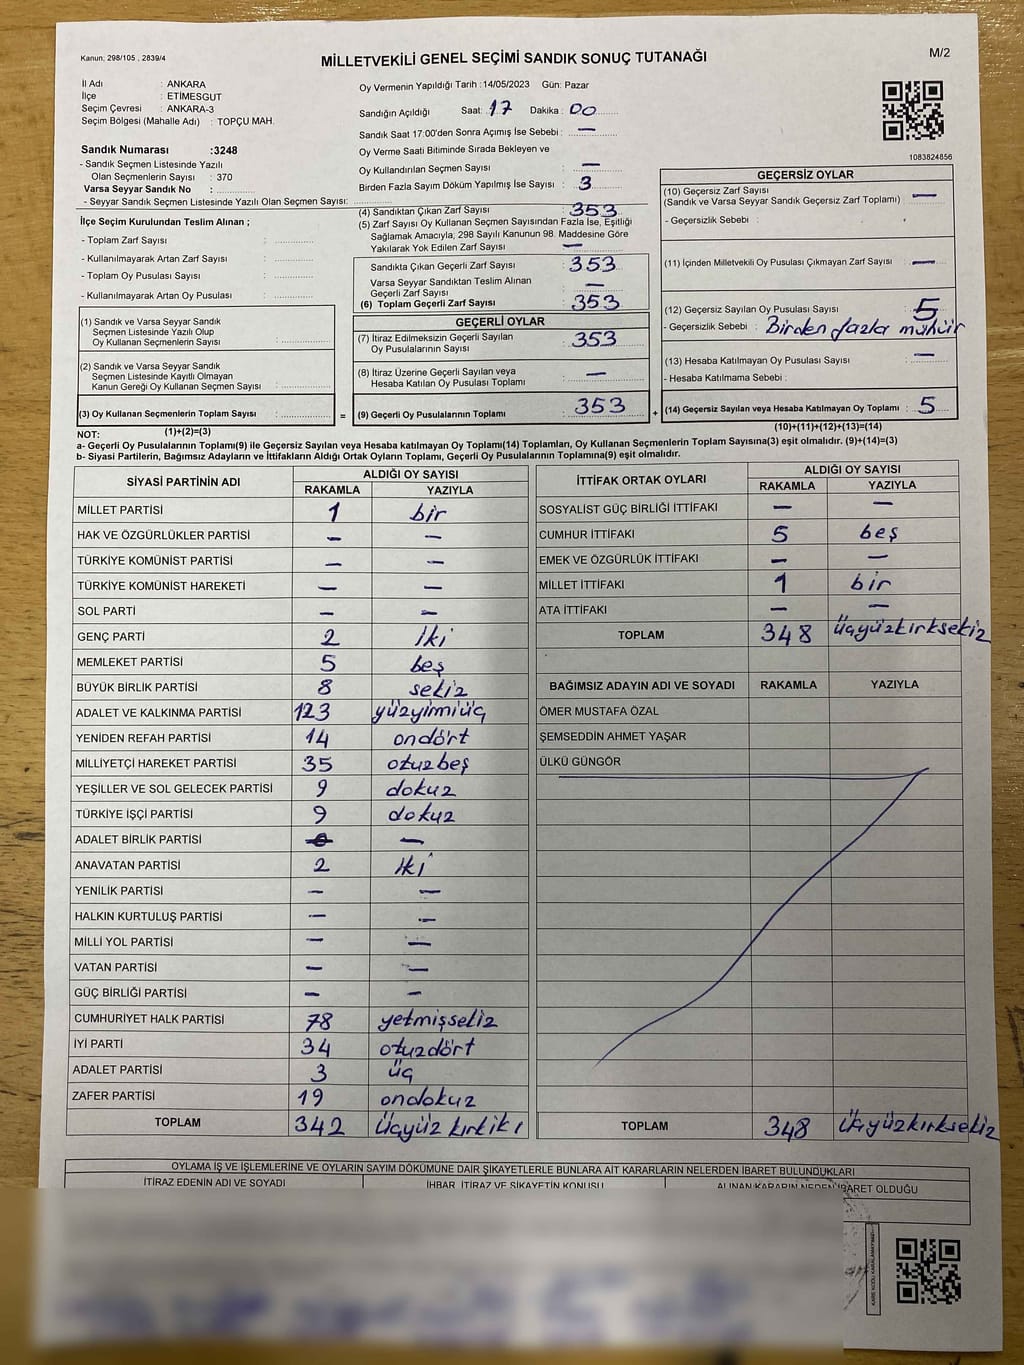 Kanun, 298/105 , 2839/4
MİLLETVEKİLİ GENEL SEÇİMİ SANDIK SONUÇ TUTANAĞI
M/2
İl Adı : ANKARA
İlçe : ETİMESGUT
Seçim Çevresi : ANKARA-3
Seçim Bölgesi (Mahalle Adı) : TOPÇU MAH.
Sandık Numarası :3248
- Sandık Seçmen Listesinde Yazılı
Olan Seçmenlerin Sayısı : 370
Varsa Seyyar Sandık No :
- Seyyar Sandık Seçmen Listesinde Yazılı Olan Seçmen Sayısı:
Oy Vermenin Yapıldığı Tarih :14/05/2023 Gün: Pazar
Sandığın Açıldığı Saat: 17 Dakika : 00
Sandık Saat 17:00'den Sonra Açımış İse Sebebi : —
Oy Verme Saati Bitiminde Sırada Bekleyen ve
Oy Kullandırılan Seçmen Sayısı : —
Birden Fazla Sayım Döküm Yapılmış İse Sayısı : 3
1083824856
İlçe Seçim Kurulundan Teslim Alınan ;
- Toplam Zarf Sayısı :
- Kullanılmayarak Artan Zarf Sayısı :
- Toplam Oy Pusulası Sayısı :
- Kullanılmayarak Artan Oy Pusulası :
(1) Sandık ve Varsa Seyyar Sandık
Seçmen Listesinde Yazılı Olup
Oy Kullanan Seçmenlerin Sayısı :
(2) Sandık ve Varsa Seyyar Sandık
Seçmen Listesinde Kayıtlı Olmayan
Kanun Gereği Oy Kullanan Seçmen Sayısı :
(3) Oy Kullanan Seçmenlerin Toplam Sayısı :
(1)+(2)=(3)
(4) Sandıktan Çıkan Zarf Sayısı : 353
(5) Zarf Sayısı Oy Kullanan Seçmen Sayısından Fazla İse, Eşitliği
Sağlamak Amacıyla, 298 Sayılı Kanunun 98. Maddesine Göre
Yakılarak Yok Edilen Zarf Sayısı : —
Sandıkta Çıkan Geçerli Zarf Sayısı : 353
Varsa Seyyar Sandıktan Teslim Alınan
Geçerli Zarf Sayısı : —
(6) Toplam Geçerli Zarf Sayısı : 353
GEÇERLİ OYLAR
(7) İtiraz Edilmeksizin Geçerli Sayılan
Oy Pusulalarının Sayısı : 353
(8) İtiraz Üzerine Geçerli Sayılan veya
Hesaba Katılan Oy Pusulası Toplamı : —
= (9) Geçerli Oy Pusulalarının Toplamı : 353 +
GEÇERSİZ OYLAR
(10) Geçersiz Zarf Sayısı
(Sandık ve Varsa Seyyar Sandık Geçersiz Zarf Toplamı) : —
- Geçersizlik Sebebi :
(11) İçinden Milletvekili Oy Pusulası Çıkmayan Zarf Sayısı : —
(12) Geçersiz Sayılan Oy Pusulası Sayısı : 5
- Geçersizlik Sebebi : Birden fazla mühür
(13) Hesaba Katılmayan Oy Pusulası Sayısı : —
- Hesaba Katılmama Sebebi :
(14) Geçersiz Sayılan veya Hesaba Katılmayan Oy Toplamı : 5
(10)+(11)+(12)+(13)=(14)
NOT:
a- Geçerli Oy Pusulalarının Toplamı(9) ile Geçersiz Sayılan veya Hesaba katılmayan Oy Toplamı(14) Toplamları, Oy Kullanan Seçmenlerin Toplam Sayısına(3) eşit olmalıdır. (9)+(14)=(3)
b- Siyasi Partilerin, Bağımsız Adayların ve İttifakların Aldığı Ortak Oyların Toplamı, Geçerli Oy Pusulalarının Toplamına(9) eşit olmalıdır.
SİYASİ PARTİNİN ADI ALDIĞI OY SAYISI
RAKAMLA YAZIYLA
MİLLET PARTİSİ 1 bir
HAK VE ÖZGÜRLÜKLER PARTİSİ — —
TÜRKİYE KOMÜNİST PARTİSİ — —
TÜRKİYE KOMÜNİST HAREKETİ — —
SOL PARTİ — —
GENÇ PARTİ 2 İki
MEMLEKET PARTİSİ 5 beş
BÜYÜK BİRLİK PARTİSİ 8 sekiz
ADALET VE KALKINMA PARTİSİ 123 yüzyirmiüç
YENİDEN REFAH PARTİSİ 14 ondört
MİLLİYETÇİ HAREKET PARTİSİ 35 otuzbeş
YEŞİLLER VE SOL GELECEK PARTİSİ 9 dokuz
TÜRKİYE İŞÇİ PARTİSİ 9 dokuz
ADALET BİRLİK PARTİSİ — —
ANAVATAN PARTİSİ 2 İki
YENİLİK PARTİSİ — —
HALKIN KURTULUŞ PARTİSİ — —
MİLLİ YOL PARTİSİ — —
VATAN PARTİSİ — —
GÜÇ BİRLİĞİ PARTİSİ — —
CUMHURİYET HALK PARTİSİ 78 yetmişsekiz
İYİ PARTİ 34 otuzdört
ADALET PARTİSİ 3 üç
ZAFER PARTİSİ 19 ondokuz
TOPLAM 342 Üçyüz kırkiki
İTTİFAK ORTAK OYLARI ALDIĞI OY SAYISI
RAKAMLA YAZIYLA
SOSYALİST GÜÇ BİRLİĞİ İTTİFAKI — —
CUMHUR İTTİFAKI 5 beş
EMEK VE ÖZGÜRLÜK İTTİFAKI — —
MİLLET İTTİFAKI 1 bir
ATA İTTİFAKI — —
TOPLAM 348 Üçyüzkırksekiz
BAĞIMSIZ ADAYIN ADI VE SOYADI RAKAMLA YAZIYLA
ÖMER MUSTAFA ÖZAL
ŞEMSEDDİN AHMET YAŞAR
ÜLKÜ GÜNGÖR
TOPLAM 348 Üçyüzkırksekiz
OYLAMA İŞ VE İŞLEMLERİNE VE OYLARIN SAYIM DÖKÜMÜNE DAİR ŞİKAYETLERLE BUNLARA AİT KARARLARIN NELERDEN İBARET BULUNDUKLARI
İTİRAZ EDENİN ADI VE SOYADI İHBAR, İTİRAZ VE ŞİKAYETİN KONUSU ALINAN KARARIN NEDEN İBARET OLDUĞU